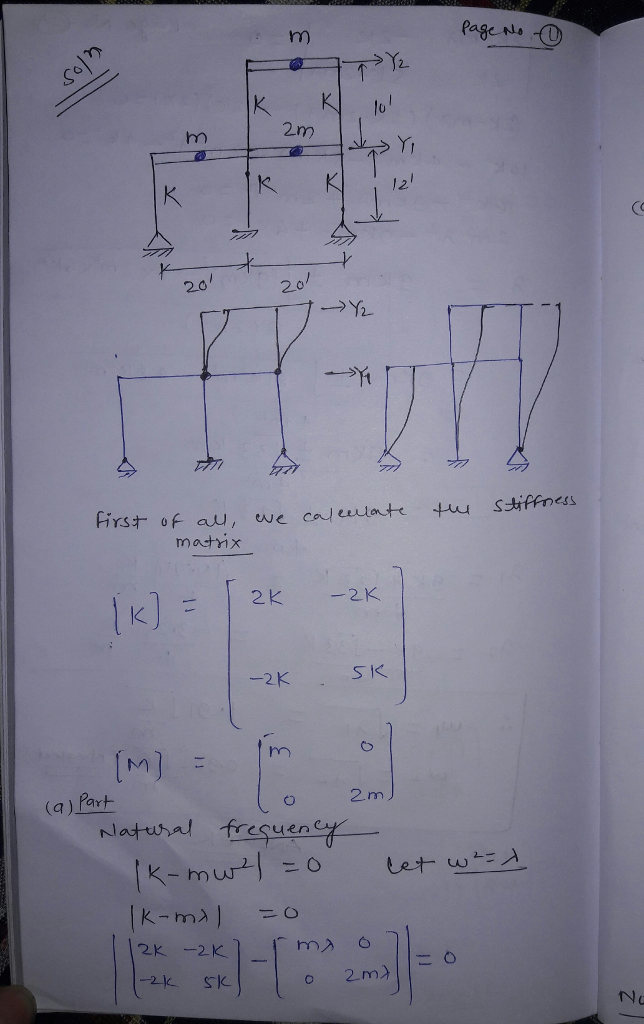 Page No - 11
Sol/n
m
→ Y2
K K 10'
m 2m → Y1
K K K 12'
20' 20'
→ Y2
→ Y1
First of all, we calculate the stiffness
matrix
[K] = [ 2K -2K
-2K 5K ]
[M] = [ m 0
0 2m ]
(a) Part
Natural frequency
|K - mω²| = 0 Let ω² = λ
|K - mλ| = 0
| [ 2K -2K
-2K 5K ] - [ mλ 0
0 2mλ ] | = 0